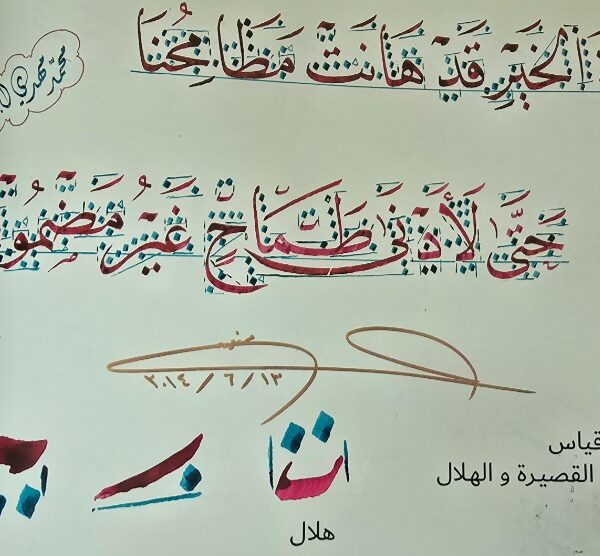 الخَيرِ قَدْ هَانَتْ مَطَامِحُنَا
محمّد مهدي
حَتَّى لِأَدْنَى طَمَاحٍ غَيْرِ
٢٠١٤ / ٦ / ١٣
قياس
القصيرة و الهلال
هلال